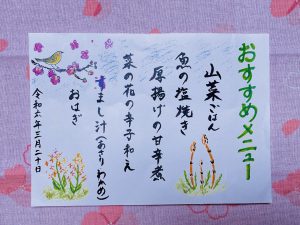 おすすめメニュー
山菜ごはん
魚の塩焼き
厚揚げの甘辛煮
菜の花の辛子和え
すまし汁(あさり わかめ)
おはぎ
令和六年三月二十日